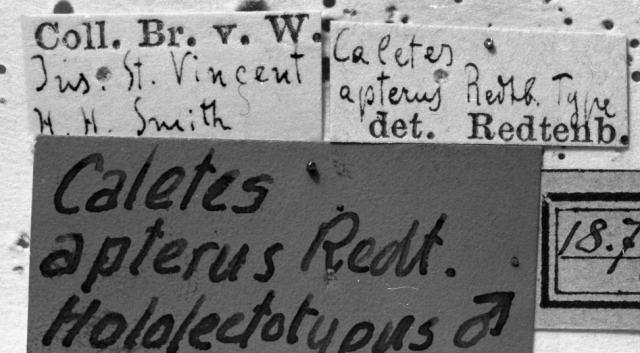 Coll. Br. v. W.
Ins. St. Vincent
H. H. Smith
Caletes
apterus Redtb. Type
det. Redtenb.
Caletes
apterus Redt.
Hololectotypus ♂
18.7